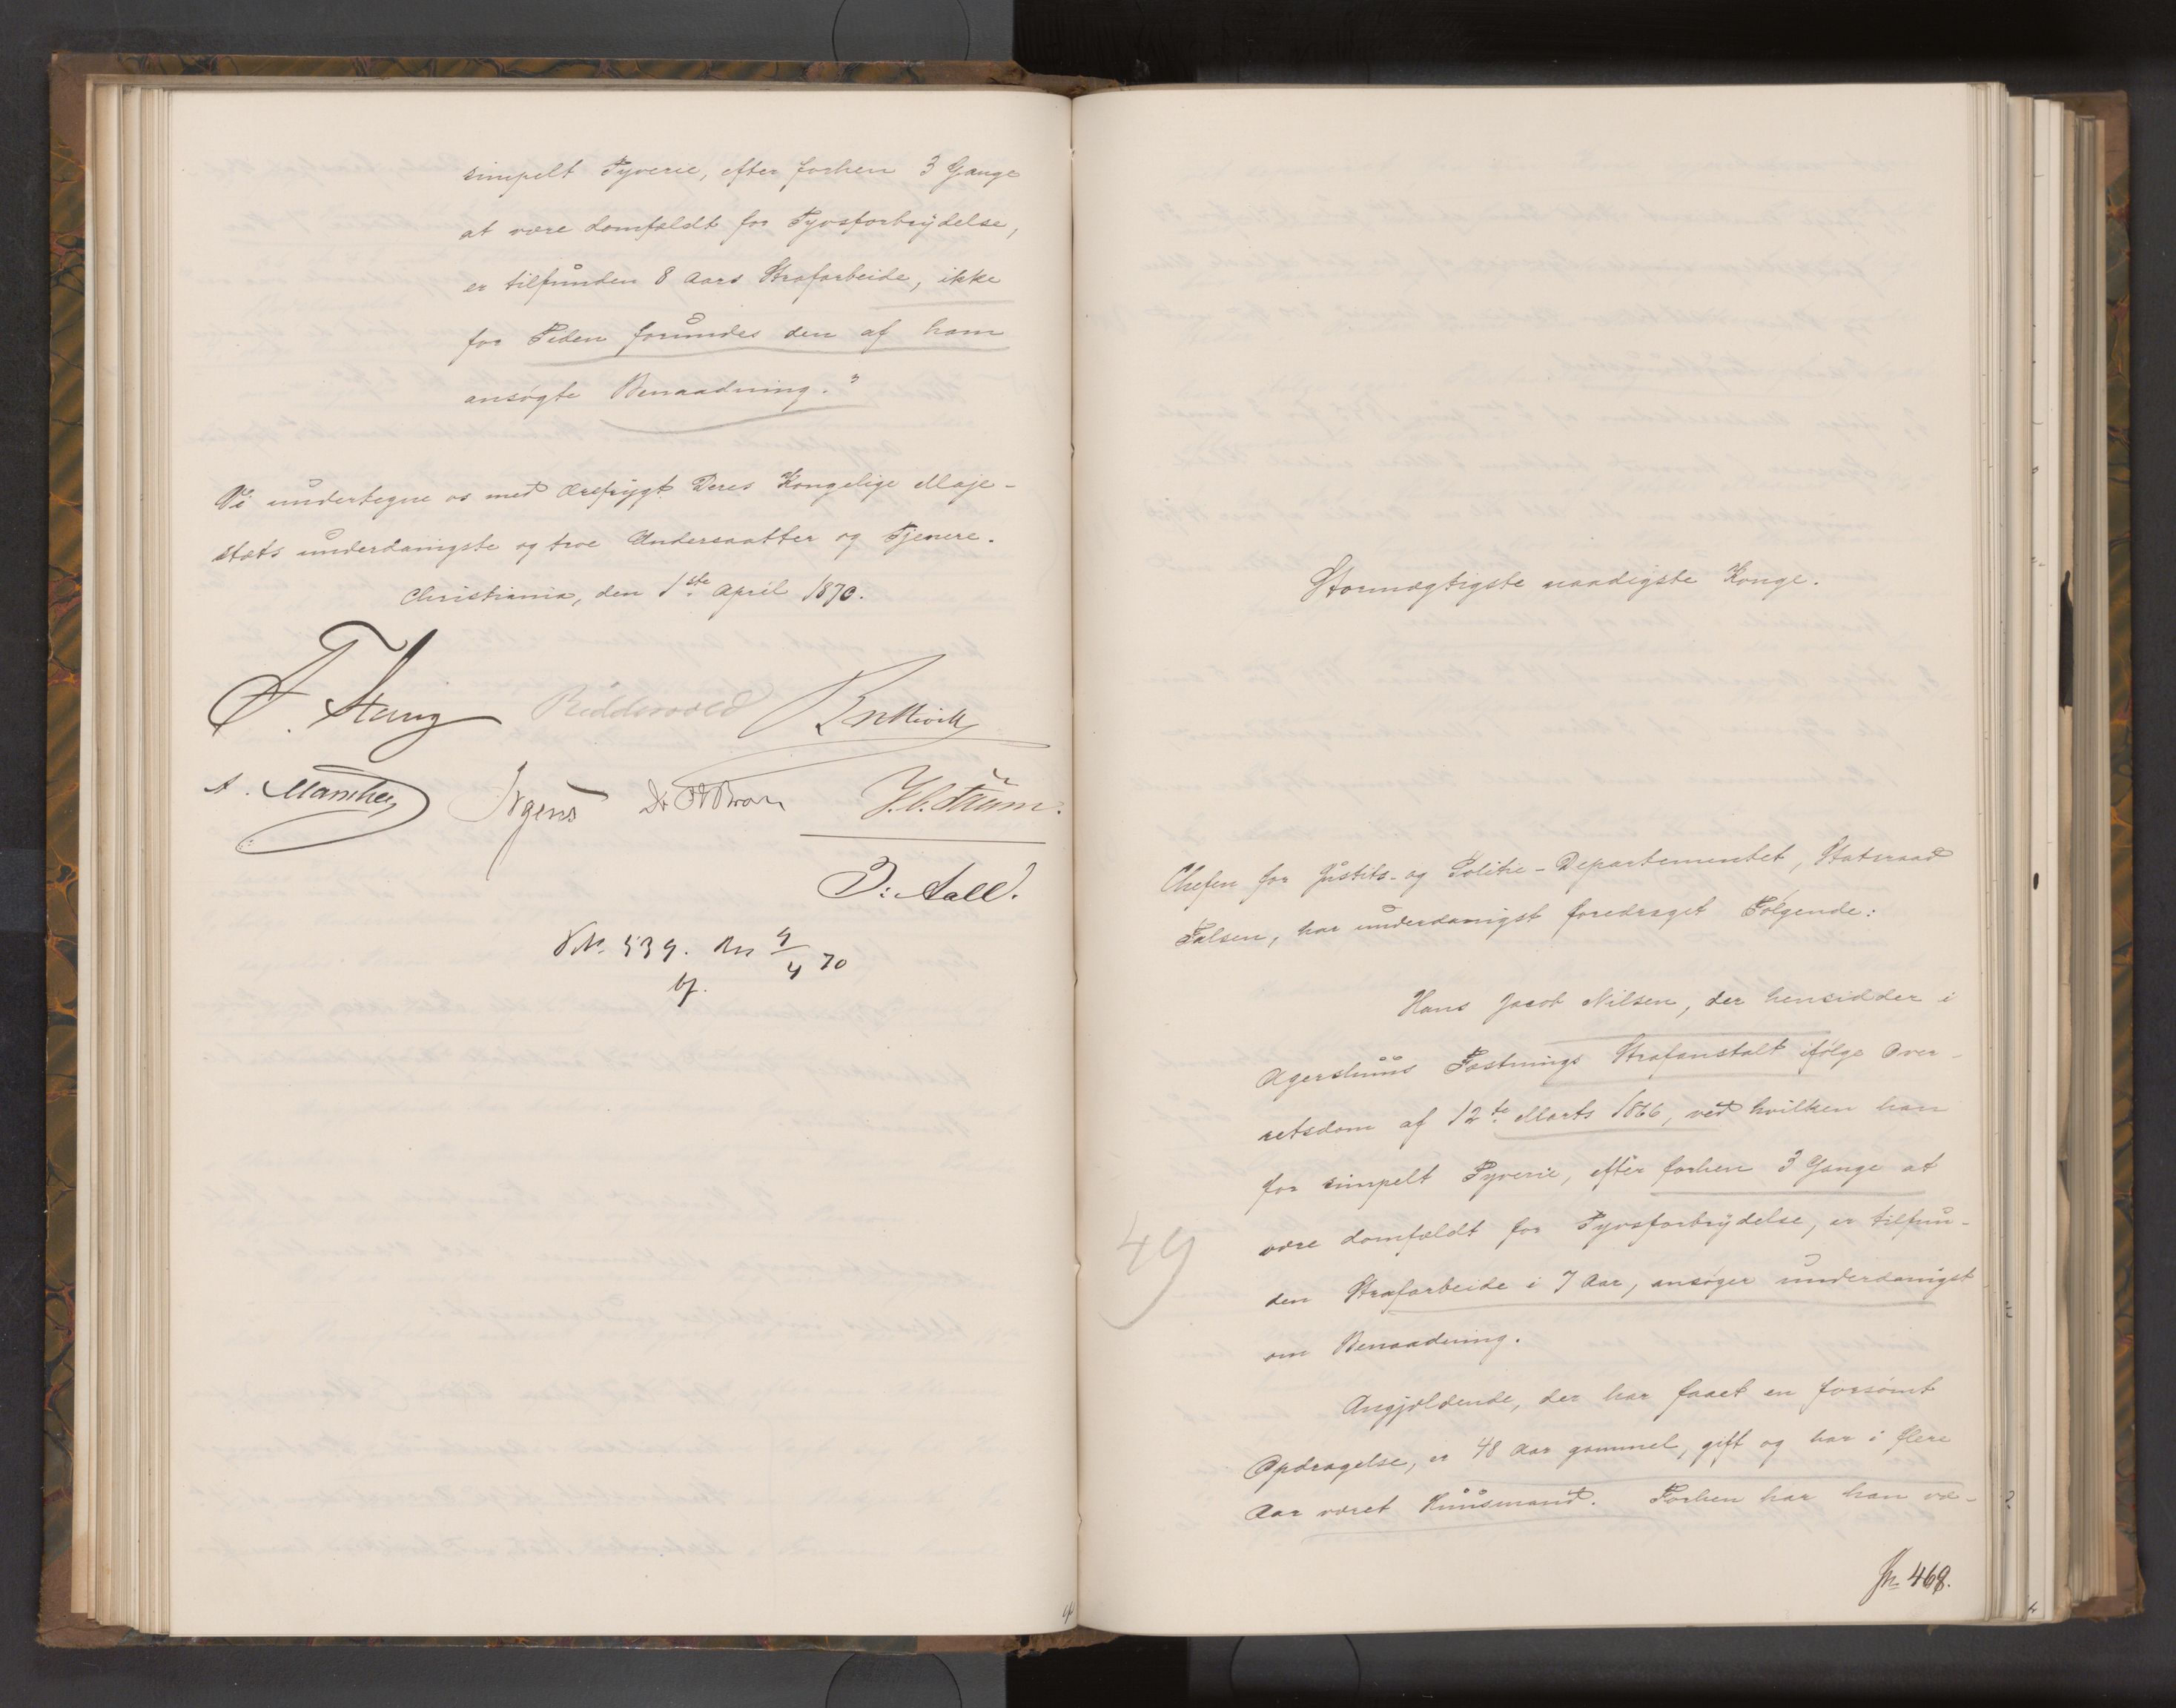 simpelt Tyverie, efter forhen 3 Gange
at være domfældt for Tyvsforbrydelse,
er tilfunden 8 Aars Strafarbeide, ikke
for Tiden forundes den af ham
ansøgte Benaadning."
Vi undertegne os med Ærefrygt Deres Kongelige Maje-
stæts underdanigste og troe Undersaatter og Tjenere.
Christiania, den 1ste April 1870.
F. Stang Riddervold Bretteville
A. Manthey Irgens J. C. Thorn.
J: Aall.
539. 9/4 70
Stormægtigste naadigste Konge.
Chefen for Justits- og Politie-Departementet, Statsraad
Falsen, har underdanigst foredraget Følgende:
Hans Jacob Nilsen, der hensidder i
Agershuus Fæstnings Strafanstalt ifølge Over-
retsdom af 12te Marts 1866, ved hvilken han
for simpelt Tyverie, efter forhen 3 Gange at
være domfældt for Tyvsforbrydelse, er tilfun-
den Strafarbeide i 7 Aar, ansøger underdanigst
om Benaadning.
49
Angjældende, der har faaet en forsømt
Opdragelse, er 48 Aar gammel, gift og har i flere
Aar været Huusmand. Forhen har han væ-
Jn. 468.